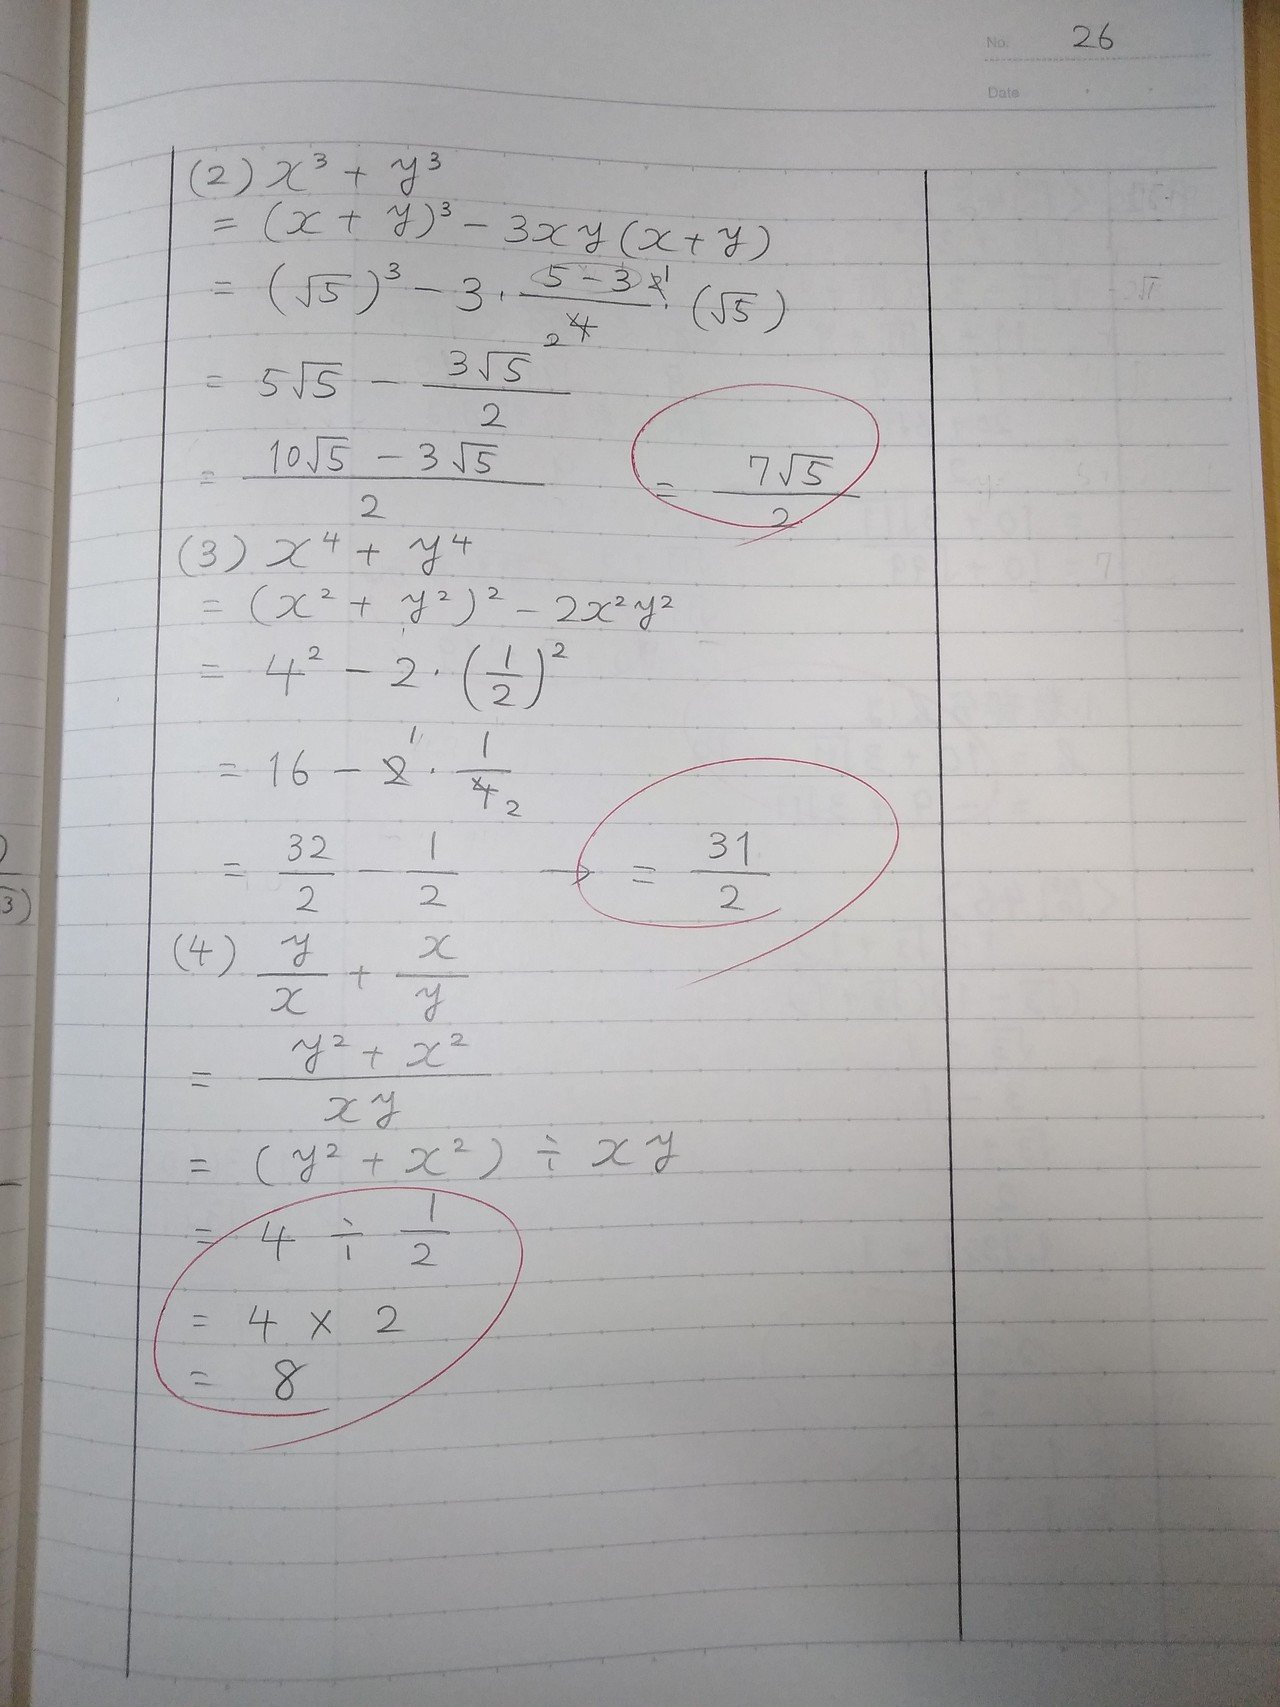 No. 26
Date
(2) x³ + y³
= (x + y)³ - 3xy(x+y)
= (√5)³ - 3 · (5-3)/4 · (√5)
2 1
= 5√5 - 3√5/2
= (10√5 - 3√5)/2 = 7√5/2
(3) x⁴ + y⁴
= (x² + y²)² - 2x²y²
= 4² - 2 · (1/2)²
= 16 - 2 · 1/4
1 2
= 32/2 - 1/2 → = 31/2
(4) y/x + x/y
= (y² + x²)/xy
= (y² + x²) ÷ xy
= 4 ÷ 1/2
= 4 × 2
= 8
3)